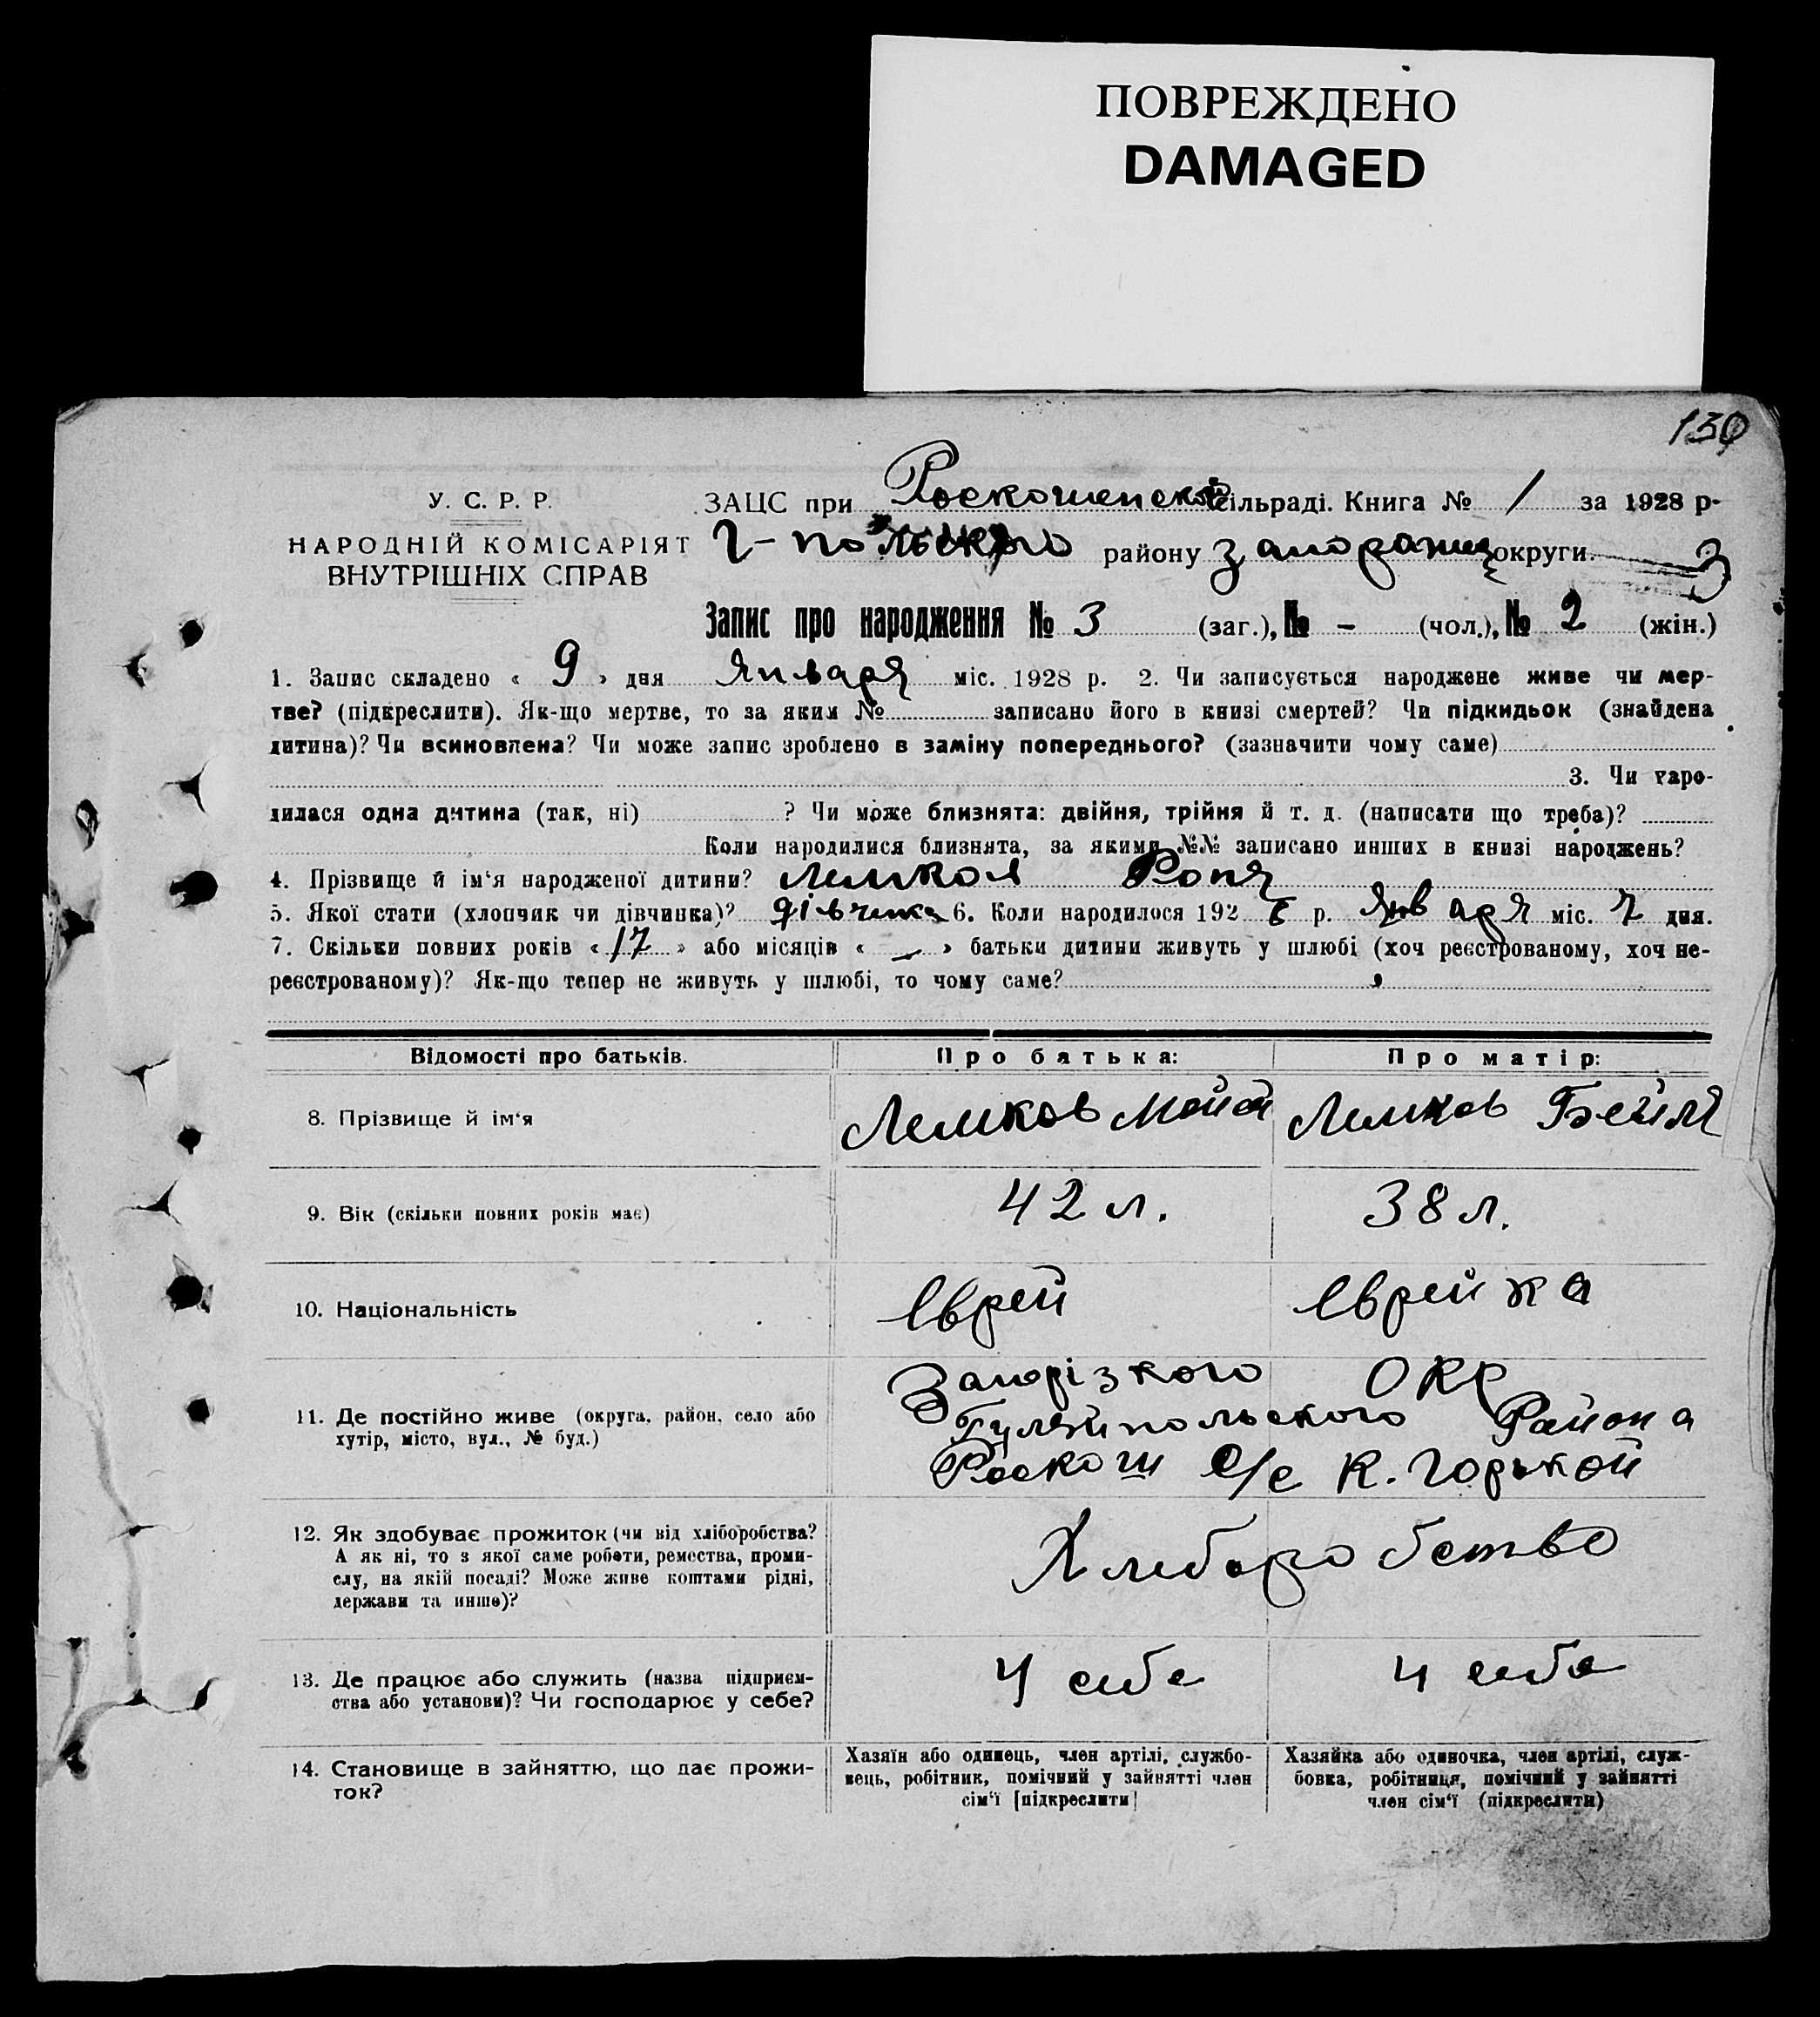 ПОВРЕЖДЕНО
DAMAGED
130
У. С. Р. Р.
НАРОДНІЙ КОМІСАРІЯТ
ВНУТРІШНІХ СПРАВ
ЗАЦС при Роскошенской сільраді. Книга № 1 за 1928 р-
Г-польского району Запорожец округи 3
Запис про народження № 3 (заг.), № - (чол.), № 2 (жін.)
1. Запис складено « 9 » дня Января міс. 1928 р. 2. Чи записується народжене живе чи мер-
тве? (підкреслити). Як-що мертве, то за яким № записано його в книзі смертей? Чи підкидьок (знайдена
дитина)? Чи всиновлена? Чи може запис зроблено в заміну попереднього? (зазначити чому саме)
3. Чи наро-
дилася одна дитина (так, ні) ? Чи може близнята: двійня, трійня й т. д. (написати що треба)?
Коли народилися близнята, за якими №№ записано инших в книзі народжень?
4. Прізвище й ім‘я народженої дитини? Роня
5. Якої стати (хлопчик чи дівчинка)? дівчинка 6. Коли народилося 192 р. Января міс. 7 дня.
7. Скільки повних років « 17 » або місяців « - » батьки дитини живуть у шлюбі (хоч реєстрованому, хоч не-
реєстрованому)? Як-що тепер не живуть у шлюбі, то чому саме?
Відомості про батьків. Про батька: Про матір:
8. Прізвище й ім‘я Лемков Мойсей Лемков Бейля
9. Вік (скільки повних років має) 42 л. 38 л.
10. Національність Еврей Еврейка
Запорізкого Окр
11. Де постійно живе (округа, район, село або Гуляйпольского Района
хутір, місто, вул., № буд.) Роскош с/с К. Горькой
12. Як здобуває прожиток (чи від хліборобства? Хлеборобство
А як ні, то з якої саме роботи, ремества, проми-
слу, на якій посаді? Може живе коштами рідні,
держави та инше)?
13. Де працює або служить (назва підприєм- У себе У себе
ства або установи)? Чи господарює у себе?
14. Становище в зайняттю, що дає прожи-
ток?
Хазяїн або одинець, член артілі, службо-
вець, робітник, помічний у зайнятті член
сім‘ї [підкреслити]
Хазяйка або одиночка, член артілі, служ-
бовка, робітниця, помічний у зайнятті
член сім‘ї (підкреслити)